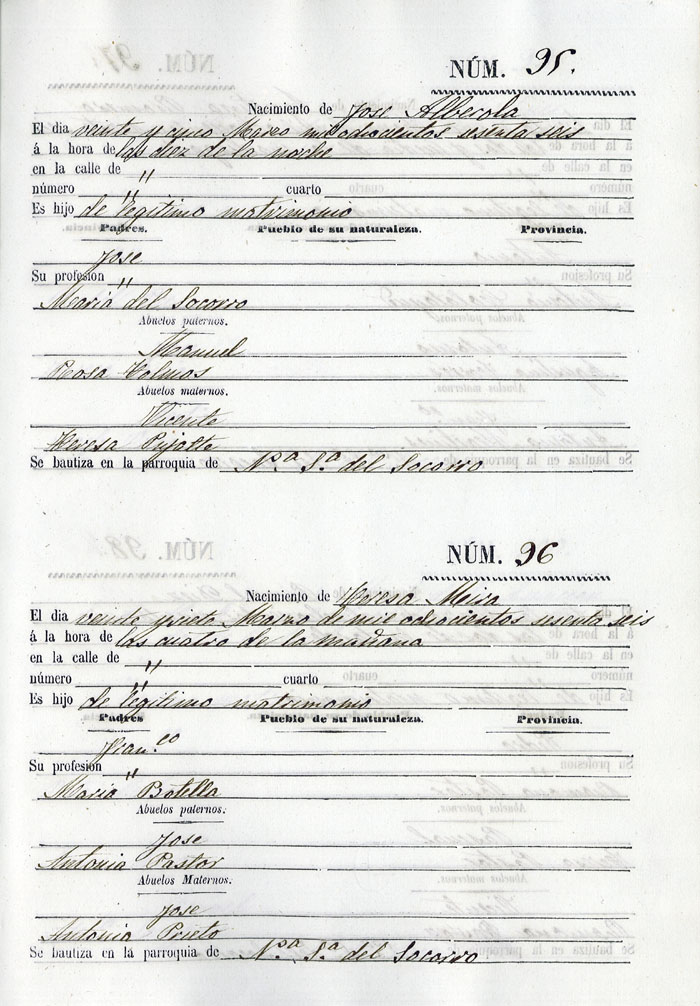 NÚM. 95.
Nacimiento de Jose Alberola
El dia veinte y cinco Marzo mil ochocientos sesenta seis
á la hora de las diez de la noche
en la calle de "
número " cuarto
Es hijo de legitimo matrimonio
Padres. Pueblo de su naturaleza. Provincia.
Jose
Su profesion "
Maria del Socorro
Abuelos paternos.
Manuel
Rosa Holmos
Abuelos maternos.
Vicente
Teresa
Se bautiza en la parroquia de N.ª S.ª del Socorro
NÚM. 96
Nacimiento de Teresa Mira
El dia veinte y siete Marzo de mil ochocientos sesenta seis
á la hora de las cuatro de la mañana
en la calle de "
número " cuarto
Es hijo de legitimo matrimonio
Padres Pueblo de su naturaleza. Provincia.
Fran.co
Su profesion "
Maria Botella
Abuelos paternos.
Jose
Antonia Pastor
Abuelos Maternos.
Jose
Antonia Prieto
Se bautiza en la parroquia de N.ª S.ª del Socorro